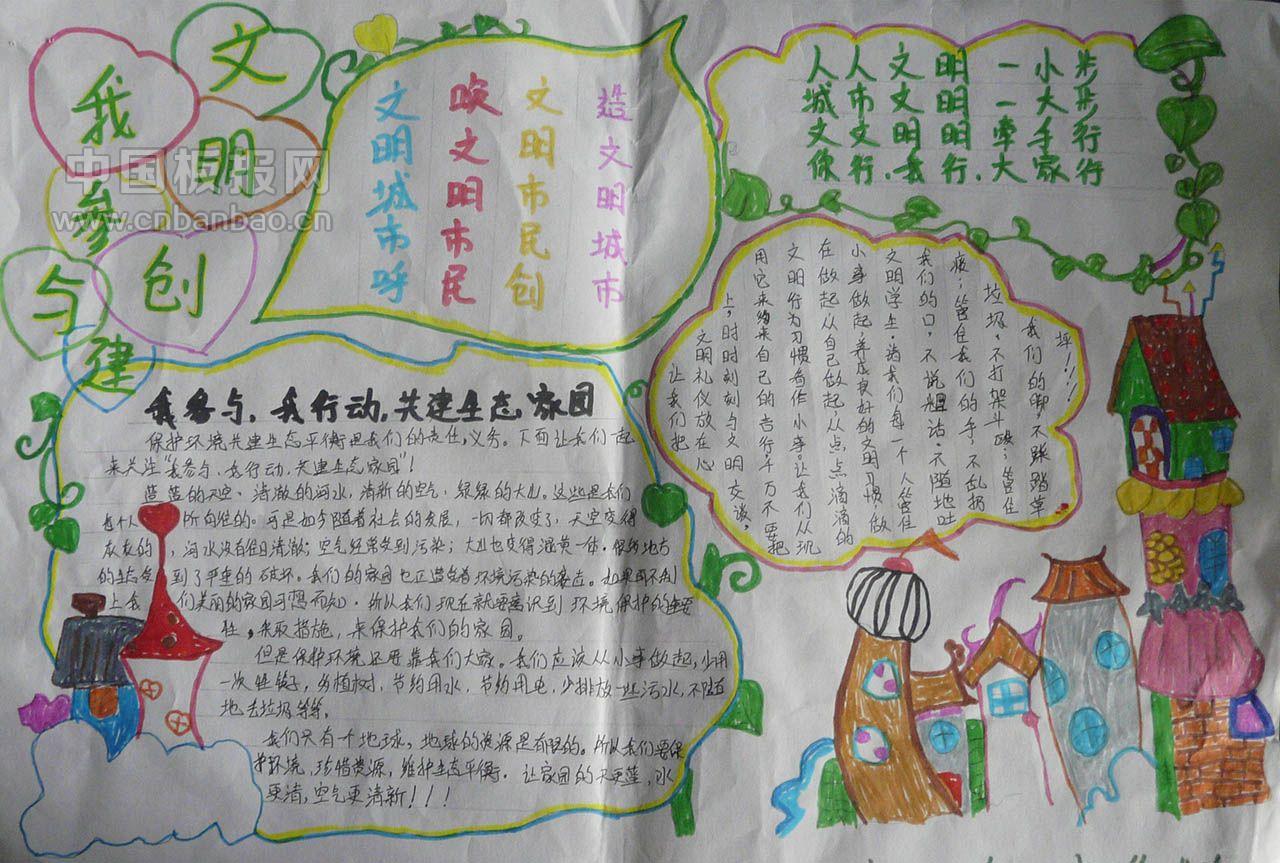 文明
我参与创建
中国板报网
www.cnbanbao.cn
文明城市呼
唤文明市民
文明市民创
造文明城市
人人文明一小步
城市文明一大步
文文明明牵手行
你行，我行，大家行
我参与，我行动，共建生态家园
保护环境共建生态平衡是我们的责任，义务。下面让我们一起
来关注“我参与，我行动，共建生态家园”！
蓝蓝的天空、清澈的河水，清新的空气，绿绿的大山。这些是我们
每个人所向往的。可是如今随着社会的发展，一切都改变了，天空变得
灰灰的，河水没有往日清澈；空气经常受到污染；大山也变得混黄一体。
的生态受到了严重的破坏。我们的家园也正遭受着环境污染的
上我们美丽的家园可想而知。所以我们现在就要意识到环境保护的重要
性。采取措施，来保护我们的家园。
但是保护环境还要靠我们大家。我们应该从小事做起，少用
一次性筷子，多植树，节约用水，节约用电，少排放一些污水，不随
地丢垃圾等等。
我们只有一个地球，地球的资源是有限的。所以我们要保
护环境，珍惜资源，维护生态平衡，让家园的天更蓝，水
更清，空气更清新！！！
让我们把
文明礼仪放在心
上，时时刻刻与文明交谈，
用它来约束自己的言行，千万不要把
文明行为习惯看作小事。让我们从现
在做起，从自己做起，从点点滴滴的
小事做起，养成良好的文明习惯，做
文明学生，当我们每一个人管住
我们的口，不说粗话，不随地吐
痰；管住我们的手，不乱扔
垃圾，不打架斗殴；管住
我们的脚不踩踏草
坪！！！